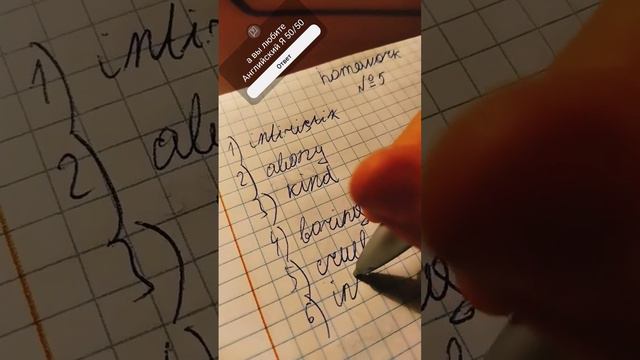 а вы любите
Английский Я 50/50
Ответ
homework
№5
1) intiristik
2) alony
3) kind
4) boring
5) cruel
6) in